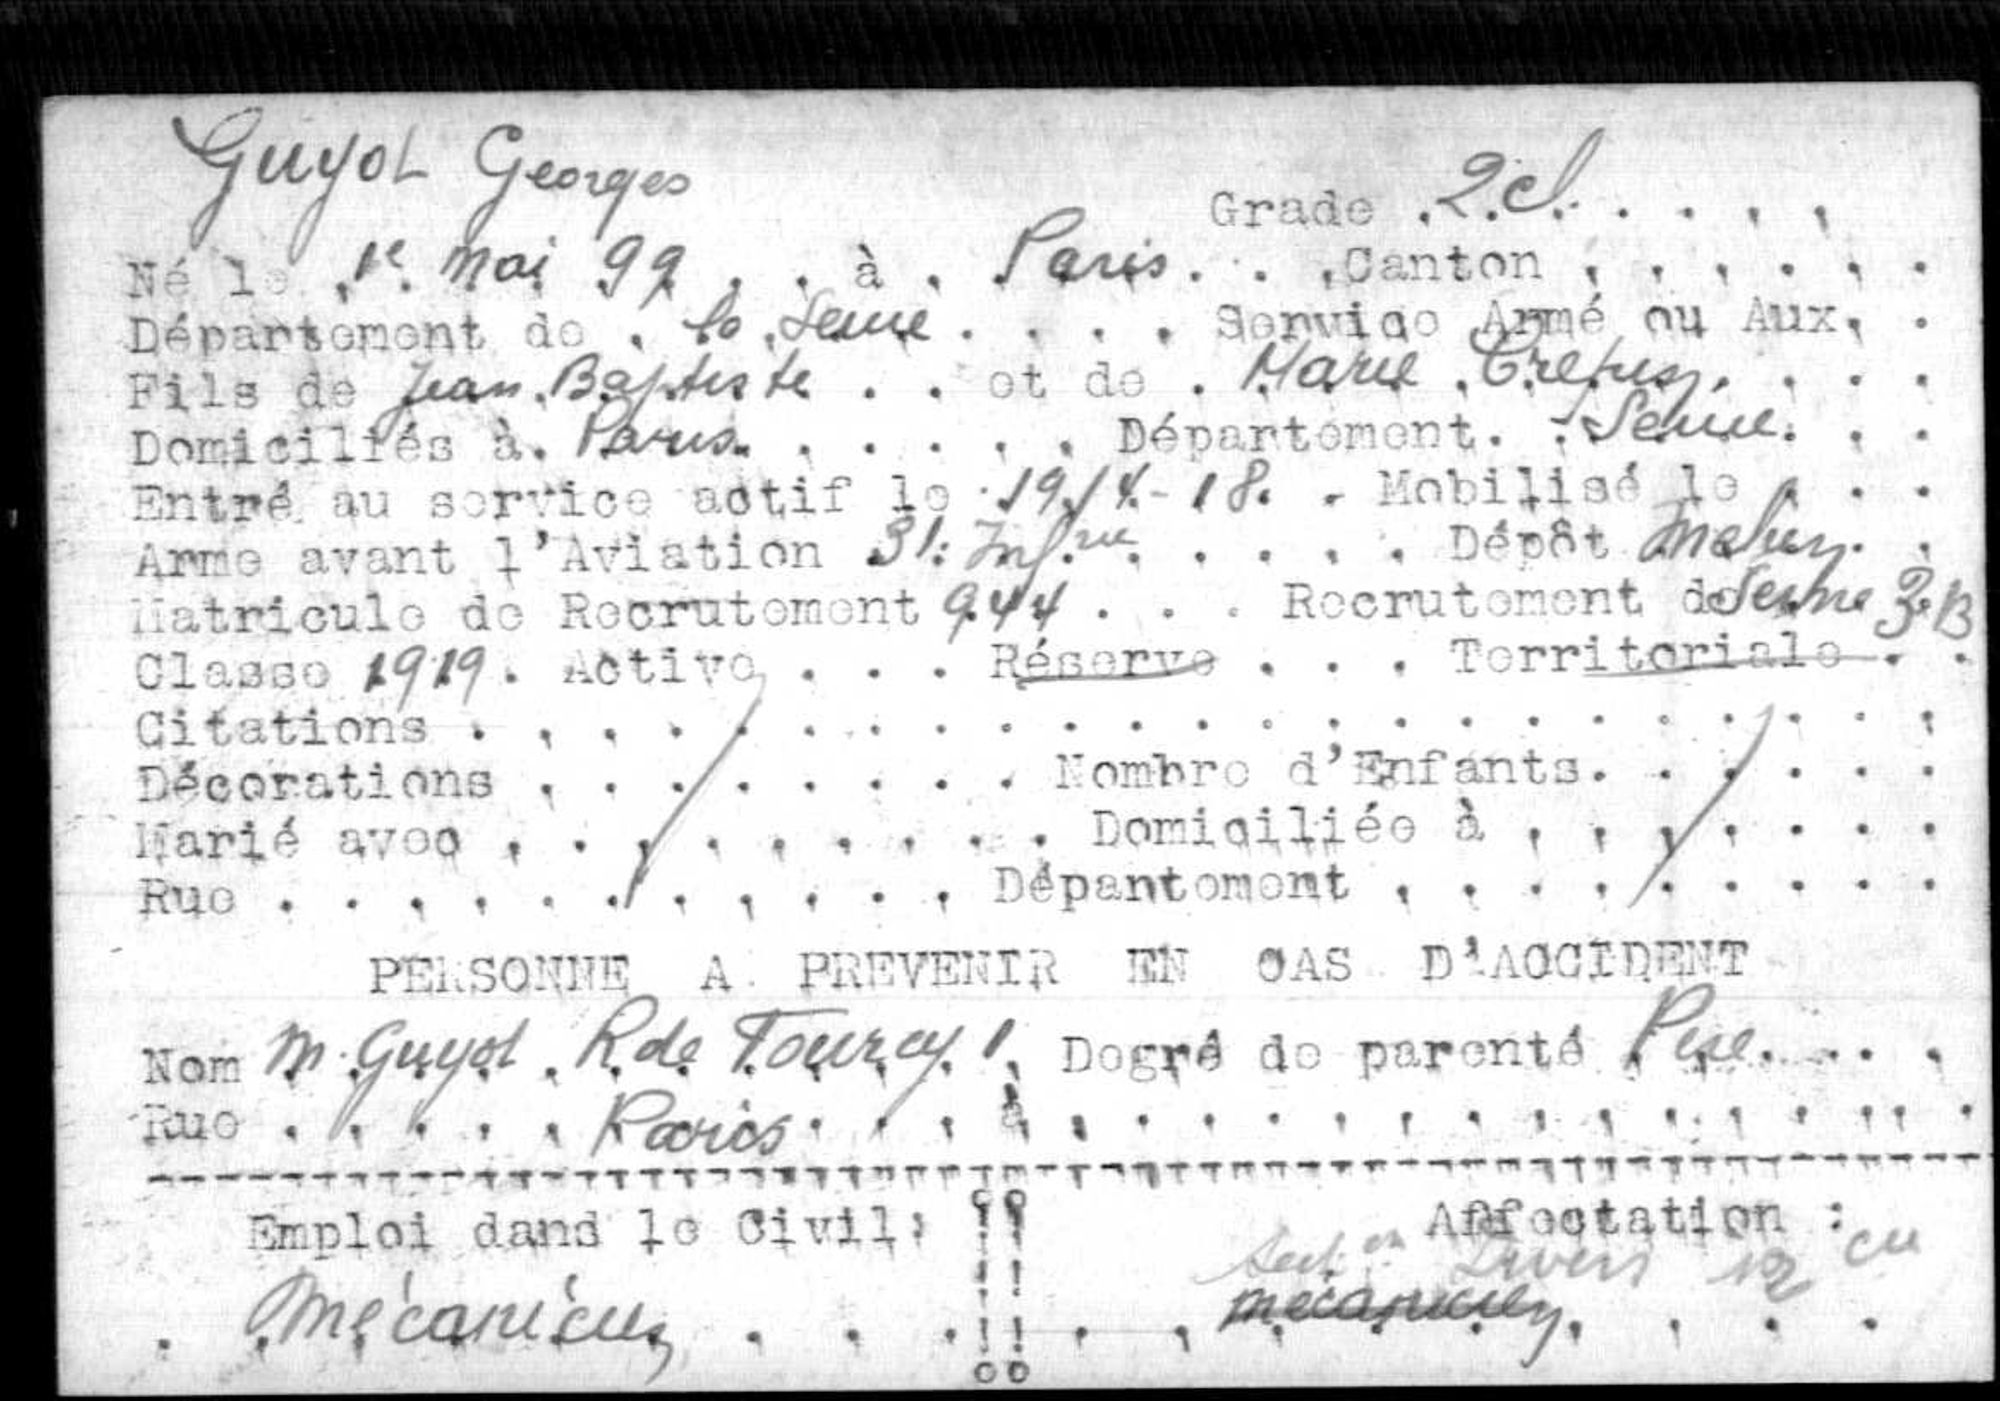 Guyot Georges
Grade 2.cl.
Né le 1e mai 99 à Paris. Canton
Département de la Seine Service Armé ou Aux.
Fils de Jean Baptiste et de Marie
Domiciliés à Paris. Département. Seine.
Entré au service actif le 1914-18. Mobilisé le
Arme avant l'Aviation 31. Inf.rie Dépôt Melun
Matricule de Recrutement 944 Recrutement de Seine 3.B
Classe 1919. Active Réserve Territoriale
Citations
Décorations Nombre d'Enfants.
Marié avec Domiciliée à
Rue Département
PERSONNE A PREVENIR EN CAS D'ACCIDENT
Nom M. Guyot R de Tourcy 1 Degré de parenté Père
Rue Paris à
Emploi dans le Civil: Affectation :
Divers
Mécanicien mécanicien